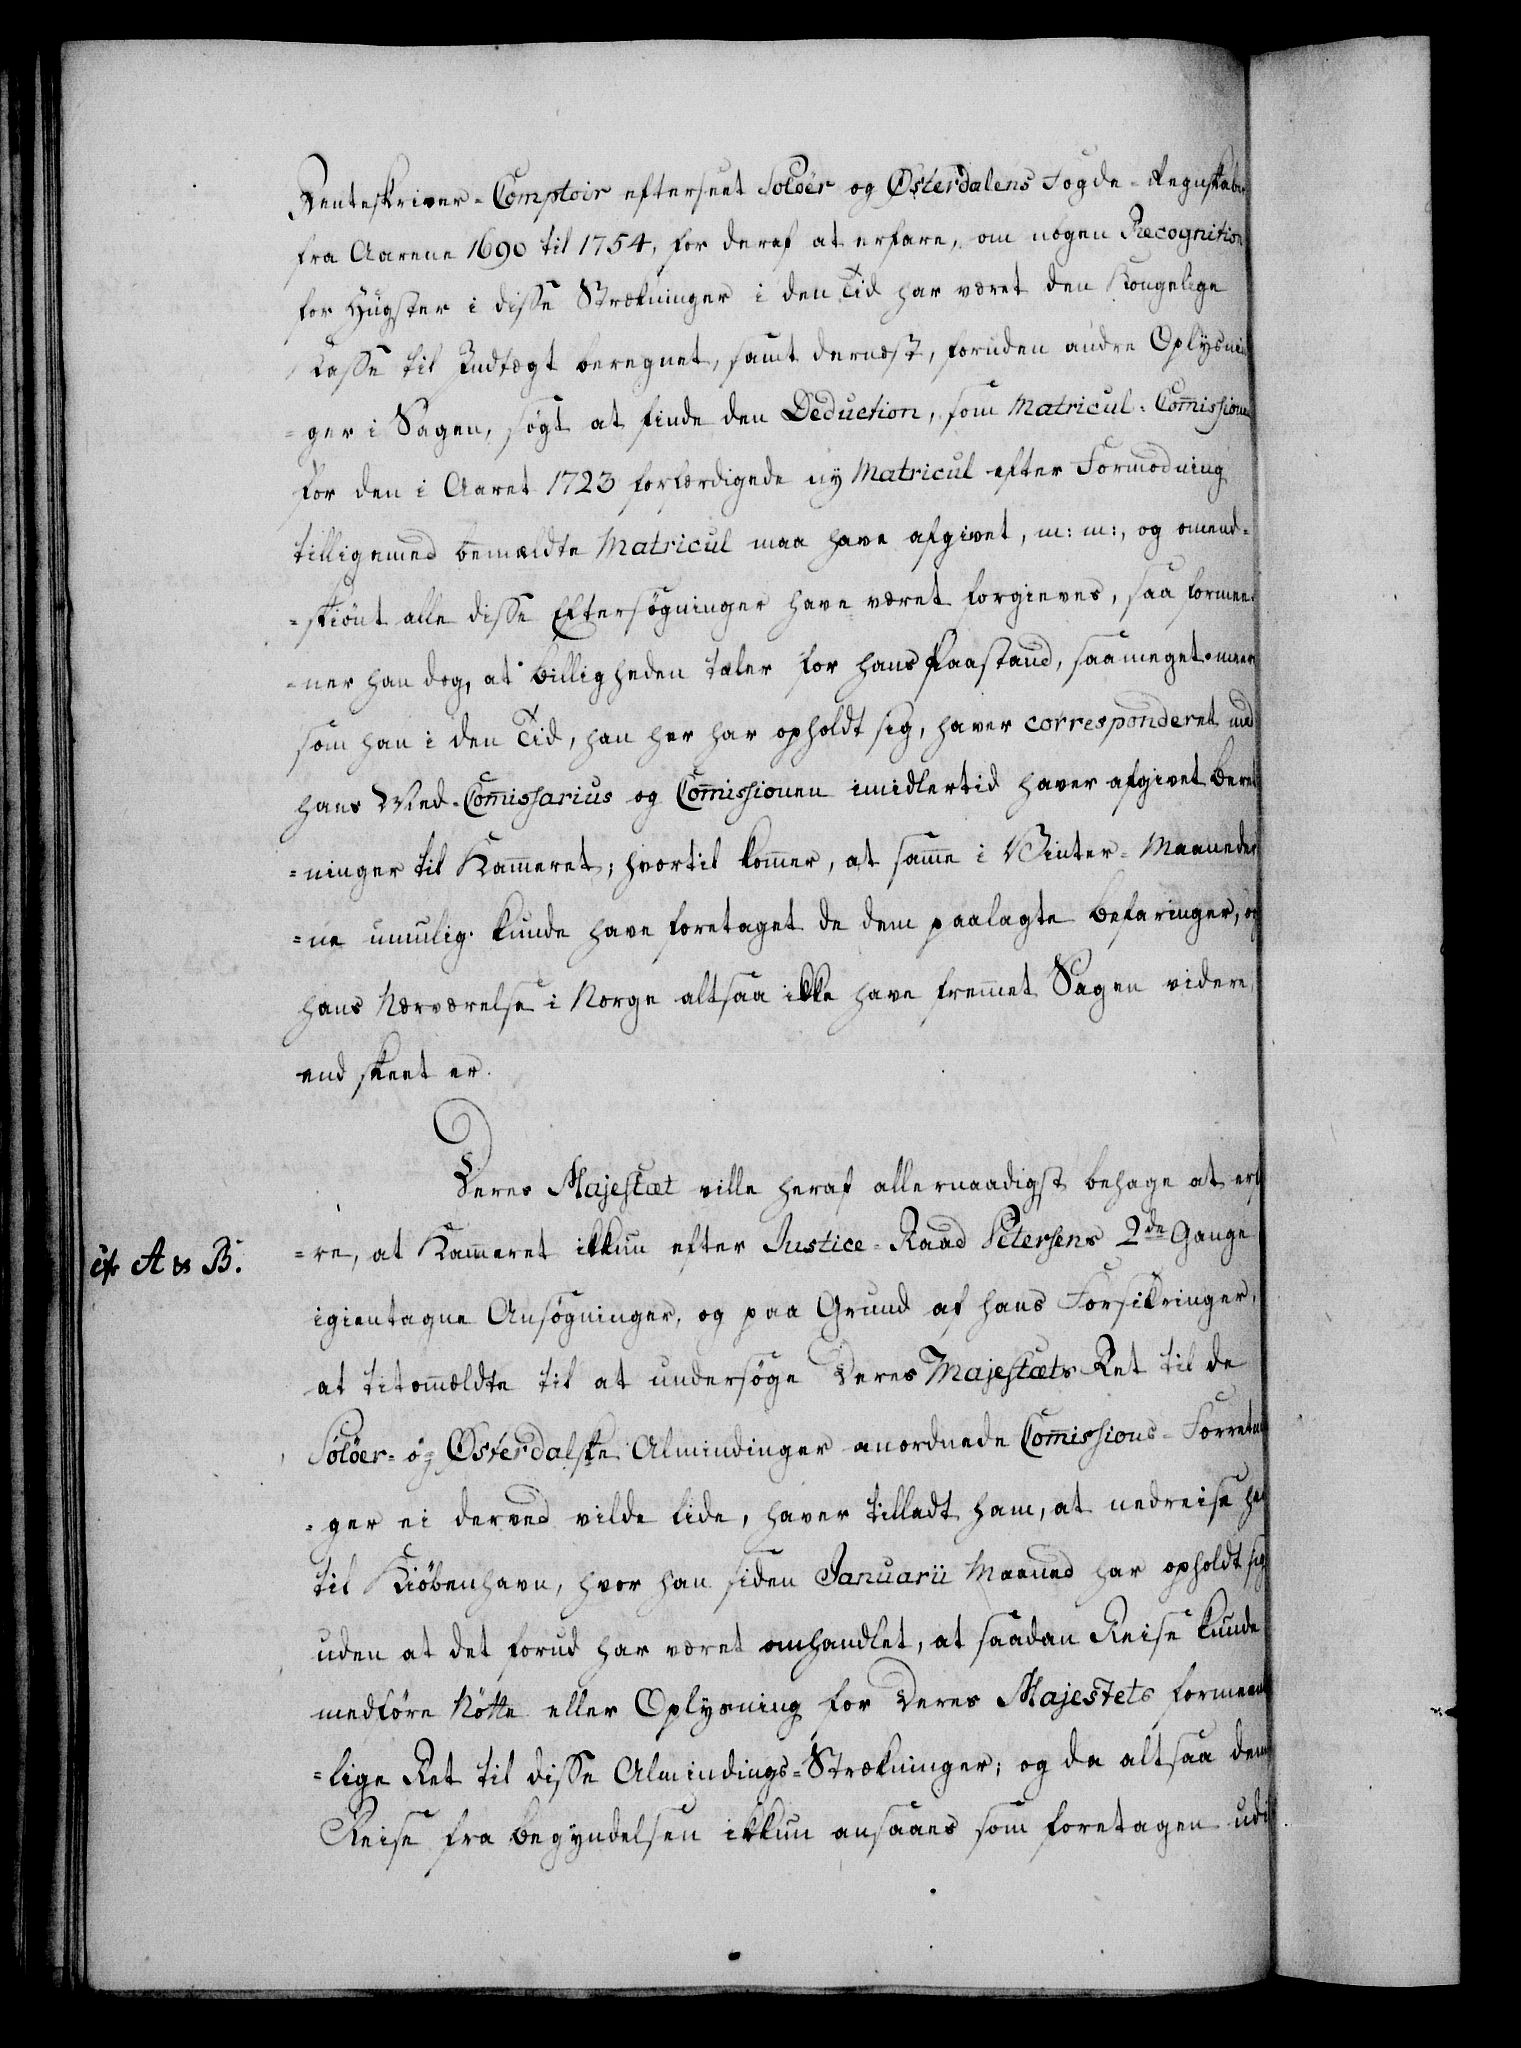 Renteskriver-Comptoir efterseet Soløer og Østerdalens Fogde-Regnskaber
fra Aarene 1690 til 1754, for deraf at erfare, om nogen Recognition
for Hugster i disse Strækninger i den Tid har været den Kongelige
Kasse til Indtægt beregnet, samt dernæst, foruden andre Oplysnin
=ger i Sagen, søgt at finde den Deduction, som Matricul-Com̄issionen
for den i Aaret 1723 forfærdigede ny Matricul efter Formodning
tilligemed bemældte Matricul maa have afgivet, m: m:, og omend-
=skiönt alle disse Eftersøgninger have været forgieves, saa formee-
=ner han dog, at billigheden taler for hans Paastand, saameget meer
som han i den Tid, han her har opholdt sig, haver corresponderet med
hans Med-Com̄issarius og Com̄issionen imidlertid haver afgivet beret
=ninger til Kam̄eret; hvortil kom̄er, at sam̄e i Vinter-Maaneder
=ne umulig kunde have foretaget de dem paalagte befaringer, og
hans Nærværelse i Norge altsaa ikke have frem̄et Sagen videre,
end skeet er.
Deres Majestæt ville heraf allernaadigst behage at erfa
=re, at Kam̄eret ikkun efter Justice-Raad Petersens 2de Gange
cfr A & B.
igientagne Ansøgninger, og paa Grund af hans Forsikringer,
at titom̄ældte til at undersøge Deres Majestæts Ret til de
Sölöer- og Østerdalske Almindinger anordnede Com̄issions-Forretnin
=ger ei derved vilde lide, haver tilladt ham, at nedreise her
til Kiøbenhavn, hvor han siden Januarii Maaned har opholdt sig
uden at det forud har været omhandlet, at saadan Reise kunde
medføre Nötte eller Oplysning for Deres Majestets formeent
=lige Ret til disse Almindings-Strækninger; og da altsaa denne
Reise fra begyndelsen ikkun ansaaes som foretagen udi